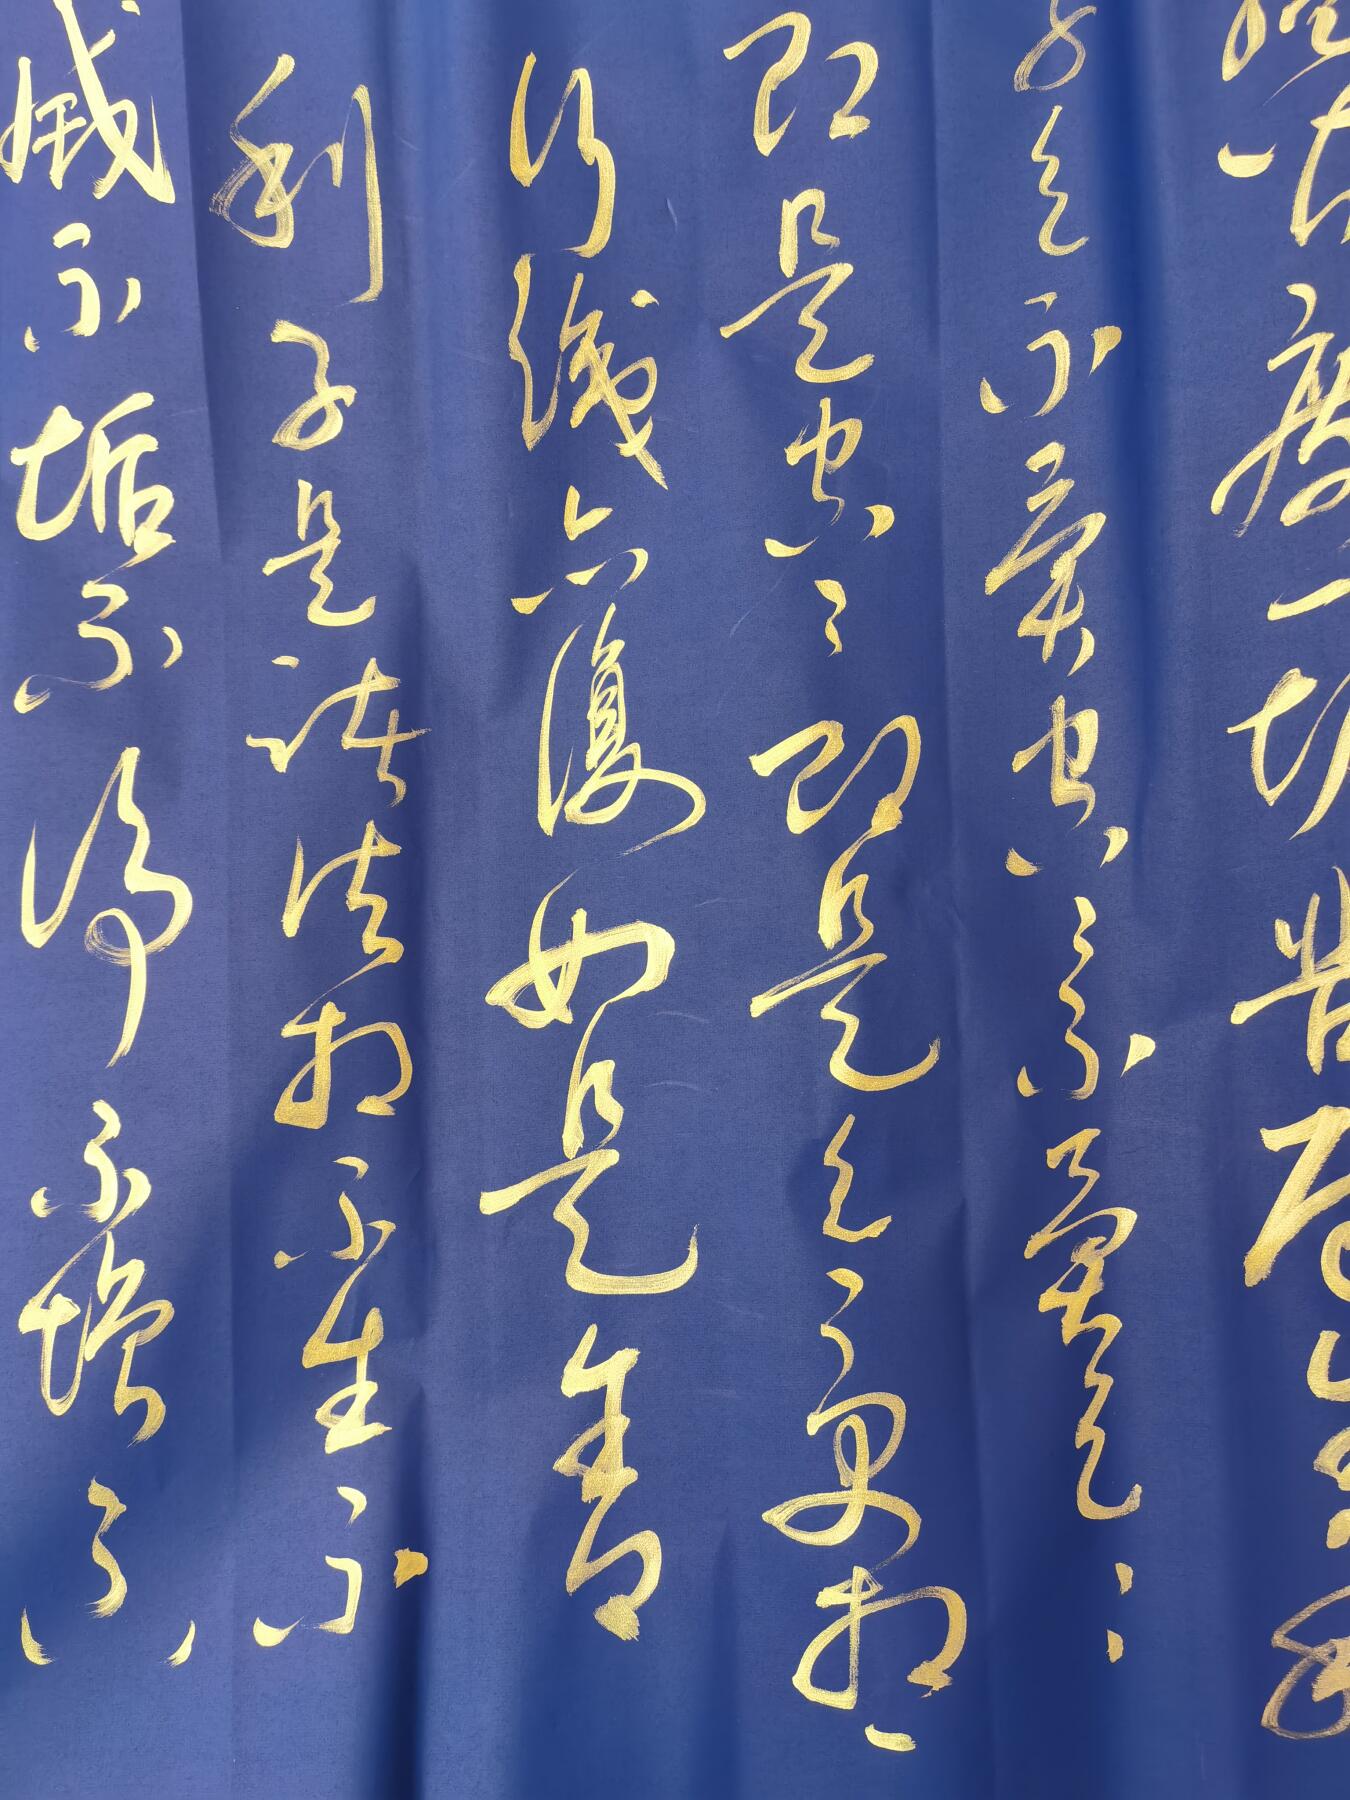 度一切苦厄舍利
子色不異空々不異色々
即是空々即是色受想
行識亦復如是舍
利子是諸法相不生不
滅不垢不淨不增不